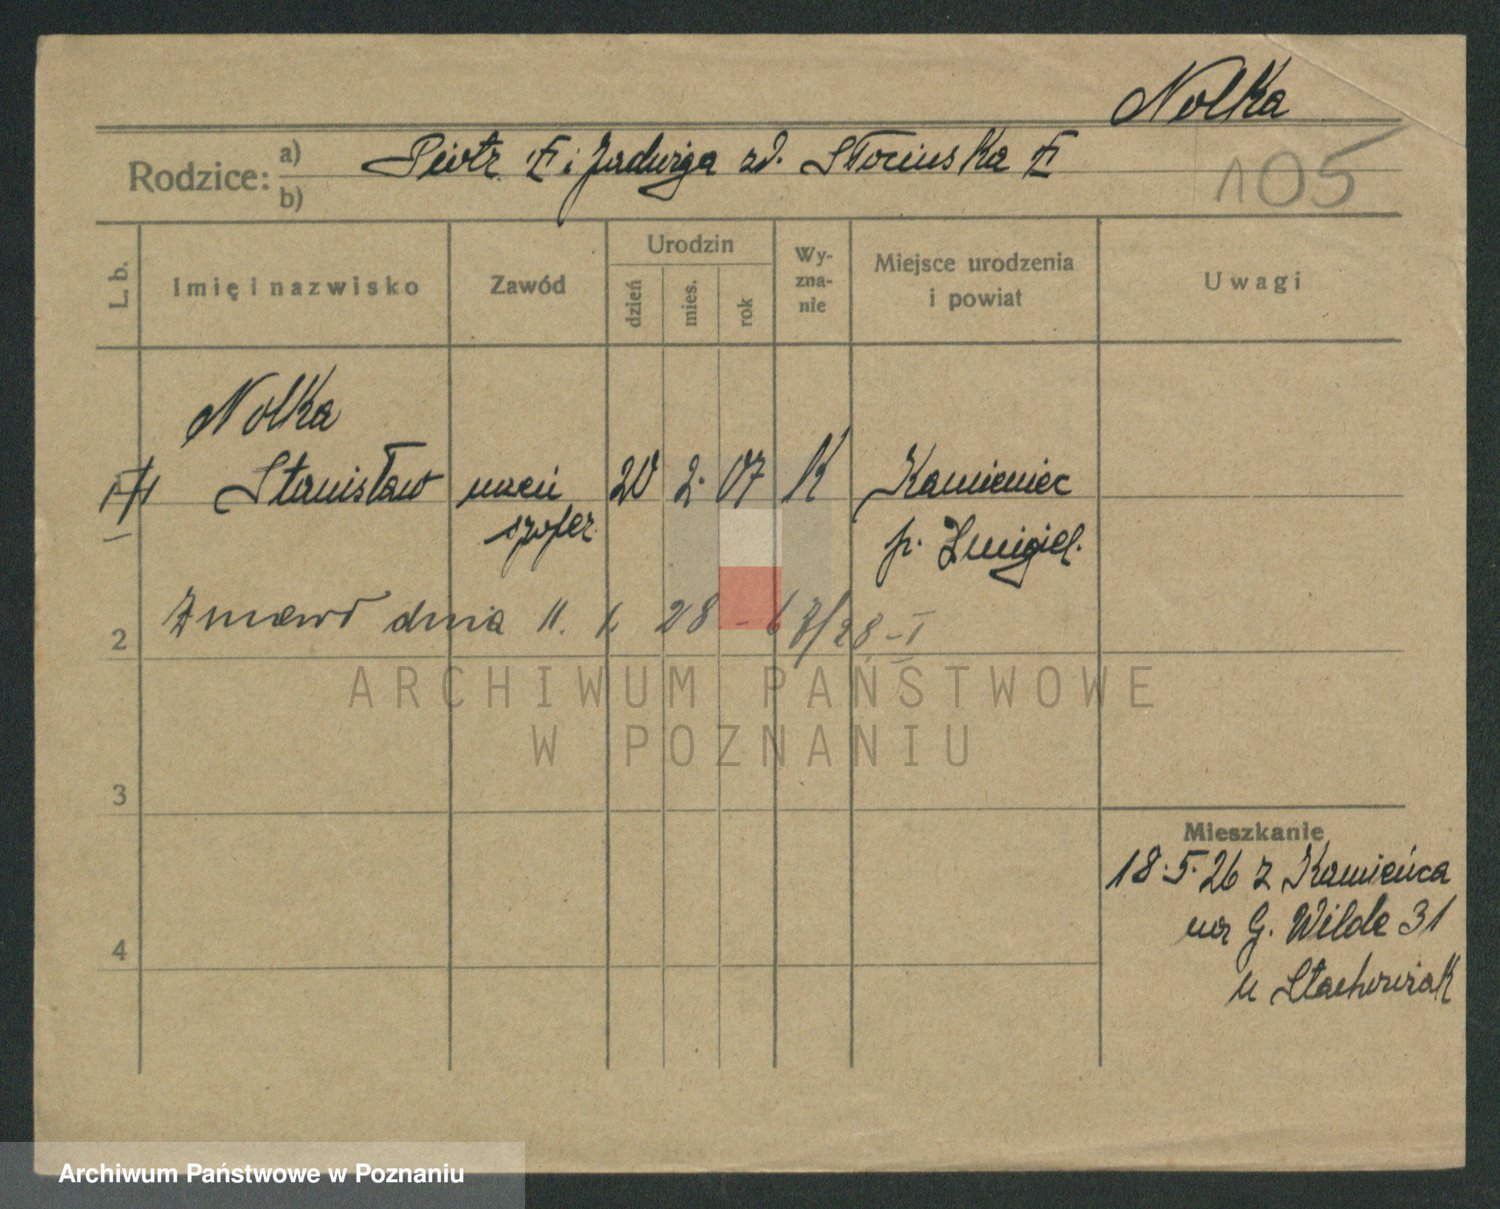 Nolka
Rodzice: a) b) Piotr i Jadwiga zd.
105
L. b. Imię i nazwisko Zawód Urodzin dzień mies. rok Wyznanie Miejsce urodzenia i powiat Uwagi
Nolka
Stanisław uczeń 20 2. 07 K Kamieniec
szofer p. Śmigiel.
2 Zmarł dnia 11. 28 - 67/28 - I
3
4
Mieszkanie
18.5.26 z Kamieńca
na G. Wilde 31
u Stachowiak
ARCHIWUM PAŃSTWOWE
W POZNANIU
Archiwum Państwowe w Poznaniu